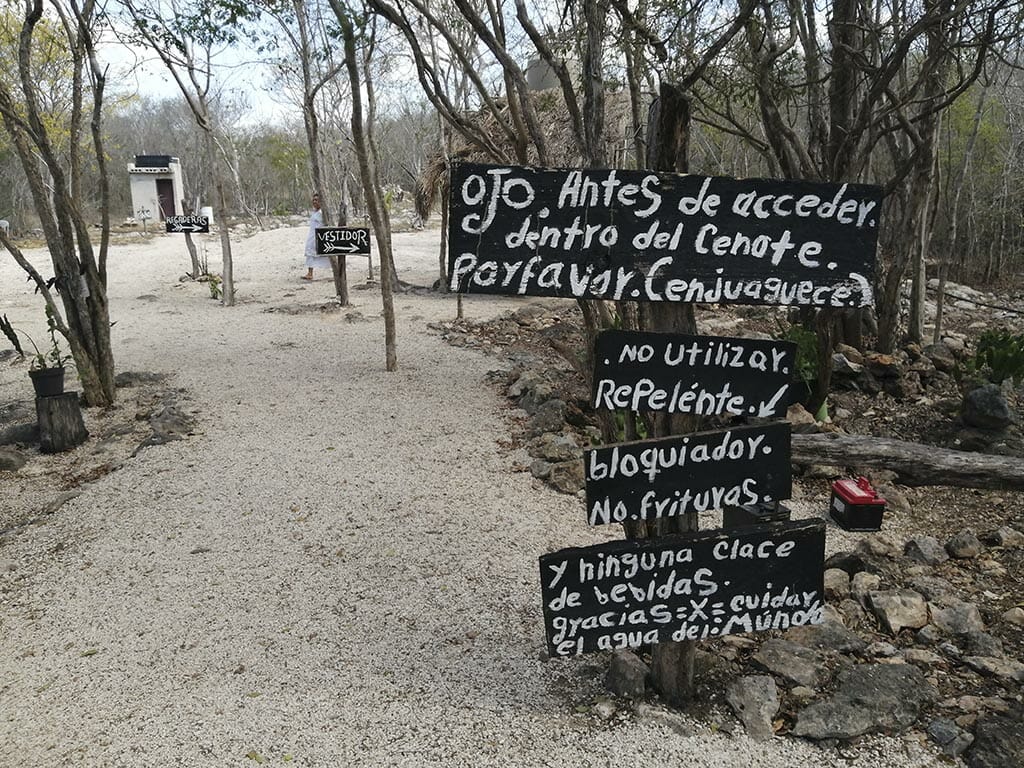 REGADERAS
VESTIDOR
OJO. Antes de acceder.
dentro del Cenote.
Porfavor. Cenjuaguece.
. NO UtilizAr.
RePelénte.
bloquiador.
No.frituras.
y ninguna clace
de bebidas.
gracias=X=cuidar
el agua del.Múndo